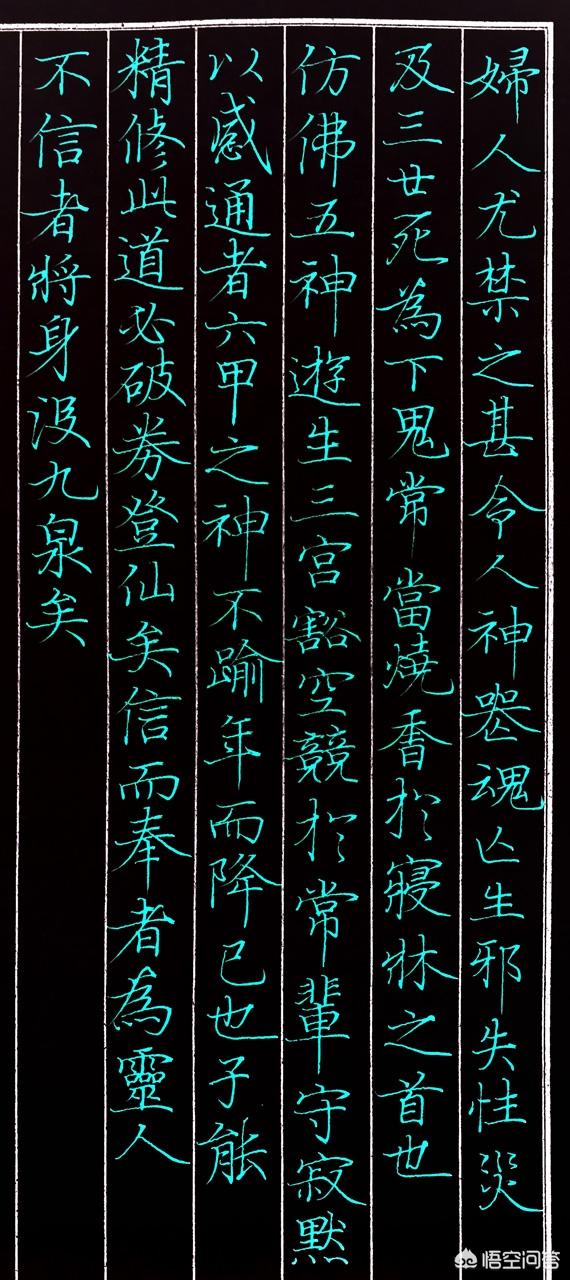 婦人尤禁之甚令人神喪魂亡生邪失性災
及三世死為下鬼常當燒香於寢牀之首也
仿佛五神遊生三宮豁空競於常輩守寂默
以感通者六甲之神不踰年而降已也子能
精修此道必破券登仙矣信而奉者為靈人
不信者將身沒九泉矣
悟空问答